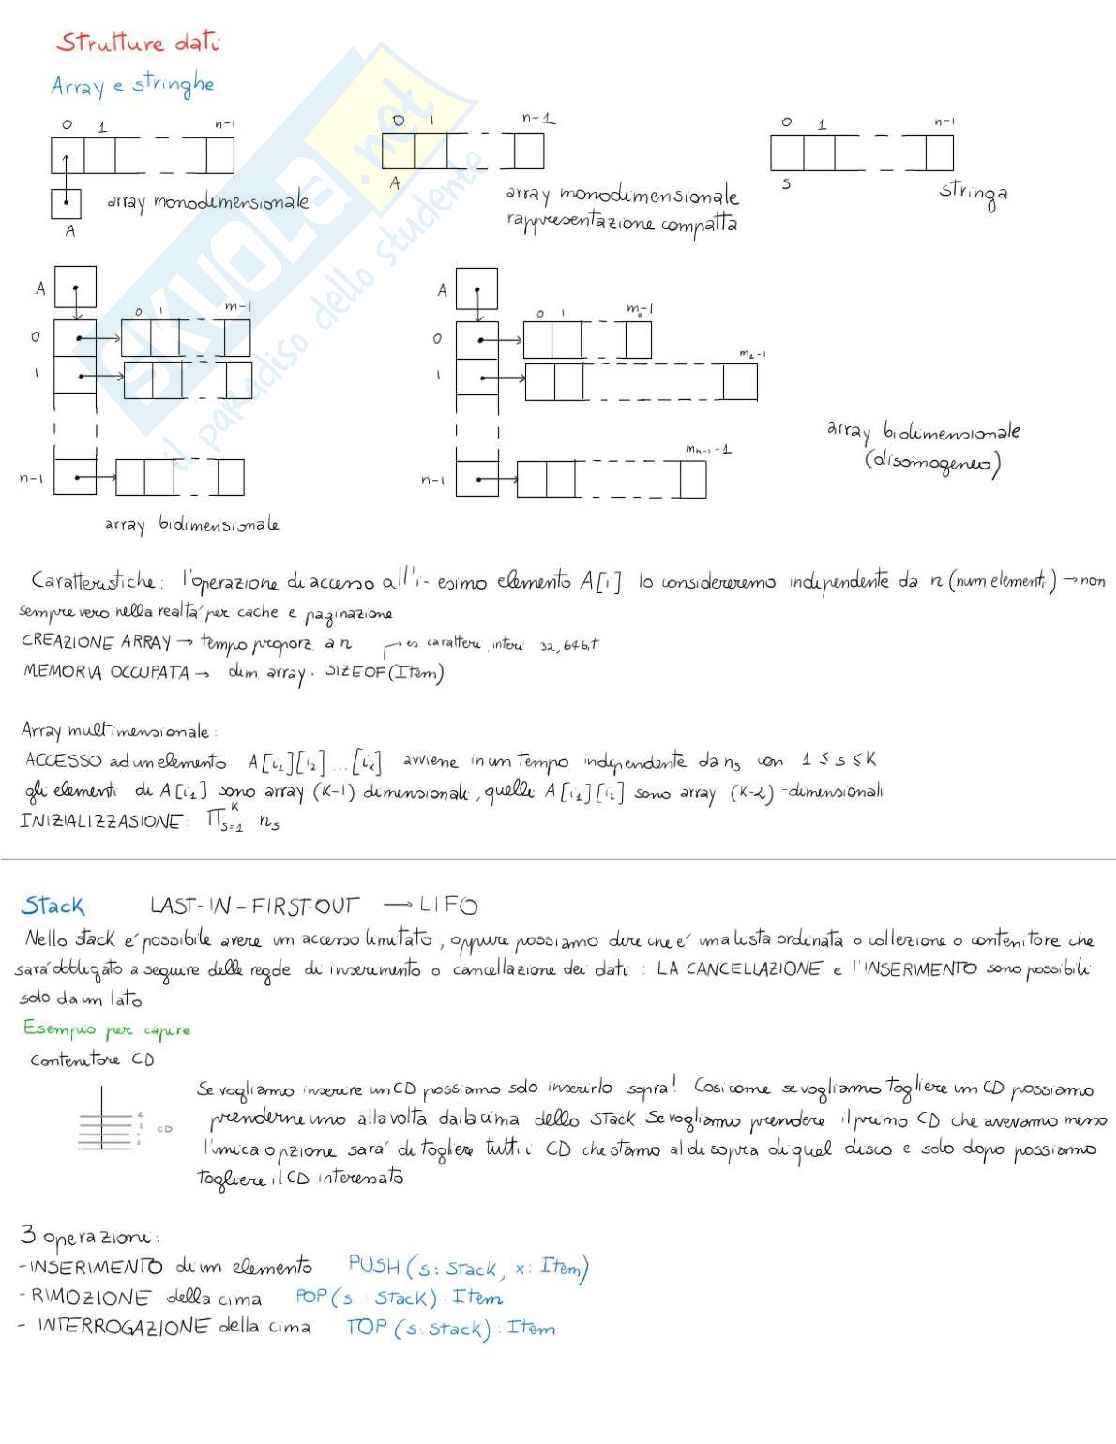 Strutture dati
Array e stringhe
0 1 n-1
A
array monodimensionale
0 1 n-1
A
array monodimensionale
rappresentazione compatta
0 1 n-1
S
stringa
A
0 1 m-1
0
1
n-1
array bidimensionale
A
0 1 m0-1
0
m1-1
1
mn-1-1
n-1
array bidimensionale
(disomogeneo)
Caratteristiche: l'operazione di accesso all'i-esimo elemento A[i] lo considereremo independente da n (num elementi) → non
sempre vero nella realtà per cache e paginazione
CREAZIONE ARRAY → tempo proporz a n
→ es caratteri, interi 32, 64 bit
MEMORIA OCCUPATA → dim array · SIZEOF(Item)
Array multimensionale:
ACCESSO ad un elemento A[i1][i2]...[ik] avviene in un tempo independente da ns con 1 ≤ s ≤ K
gli elementi di A[i1] sono array (K-1) dimensionali, quelli A[i1][i2] sono array (K-2)-dimensionali
INIZIALIZZASIONE: ∏s=1K ns
Stack LAST-IN-FIRST-OUT → LIFO
Nello stack e' possibile avere un accesso limitato, oppure possiamo dire che e' una lista ordinata o collezione o contenitore che
sara' obbligato a seguire delle regole di inserimento o cancellazione dei dati: LA CANCELLAZIONE e l'INSERIMENTO sono possibili
solo da un lato
Esempio per capire
Contenitore CD
CD
Se vogliamo inserire un CD possiamo solo inserirlo sopra! Cosi come se vogliamo togliere un CD possiamo
prenderne uno alla volta dalla cima dello stack. Se vogliamo prendere il primo CD che avevamo messo
l'unica opzione sara' di togliere tutti i CD che stanno al di sopra di quel disco e solo dopo possiamo
togliere il CD interessato
3 operazioni:
- INSERIMENTO di un elemento PUSH(s: Stack, x: Item)
- RIMOZIONE della cima POP(s: Stack): Item
- INTERROGAZIONE della cima TOP(s: Stack): Item
SKUOLA.net
il paradiso dello studente